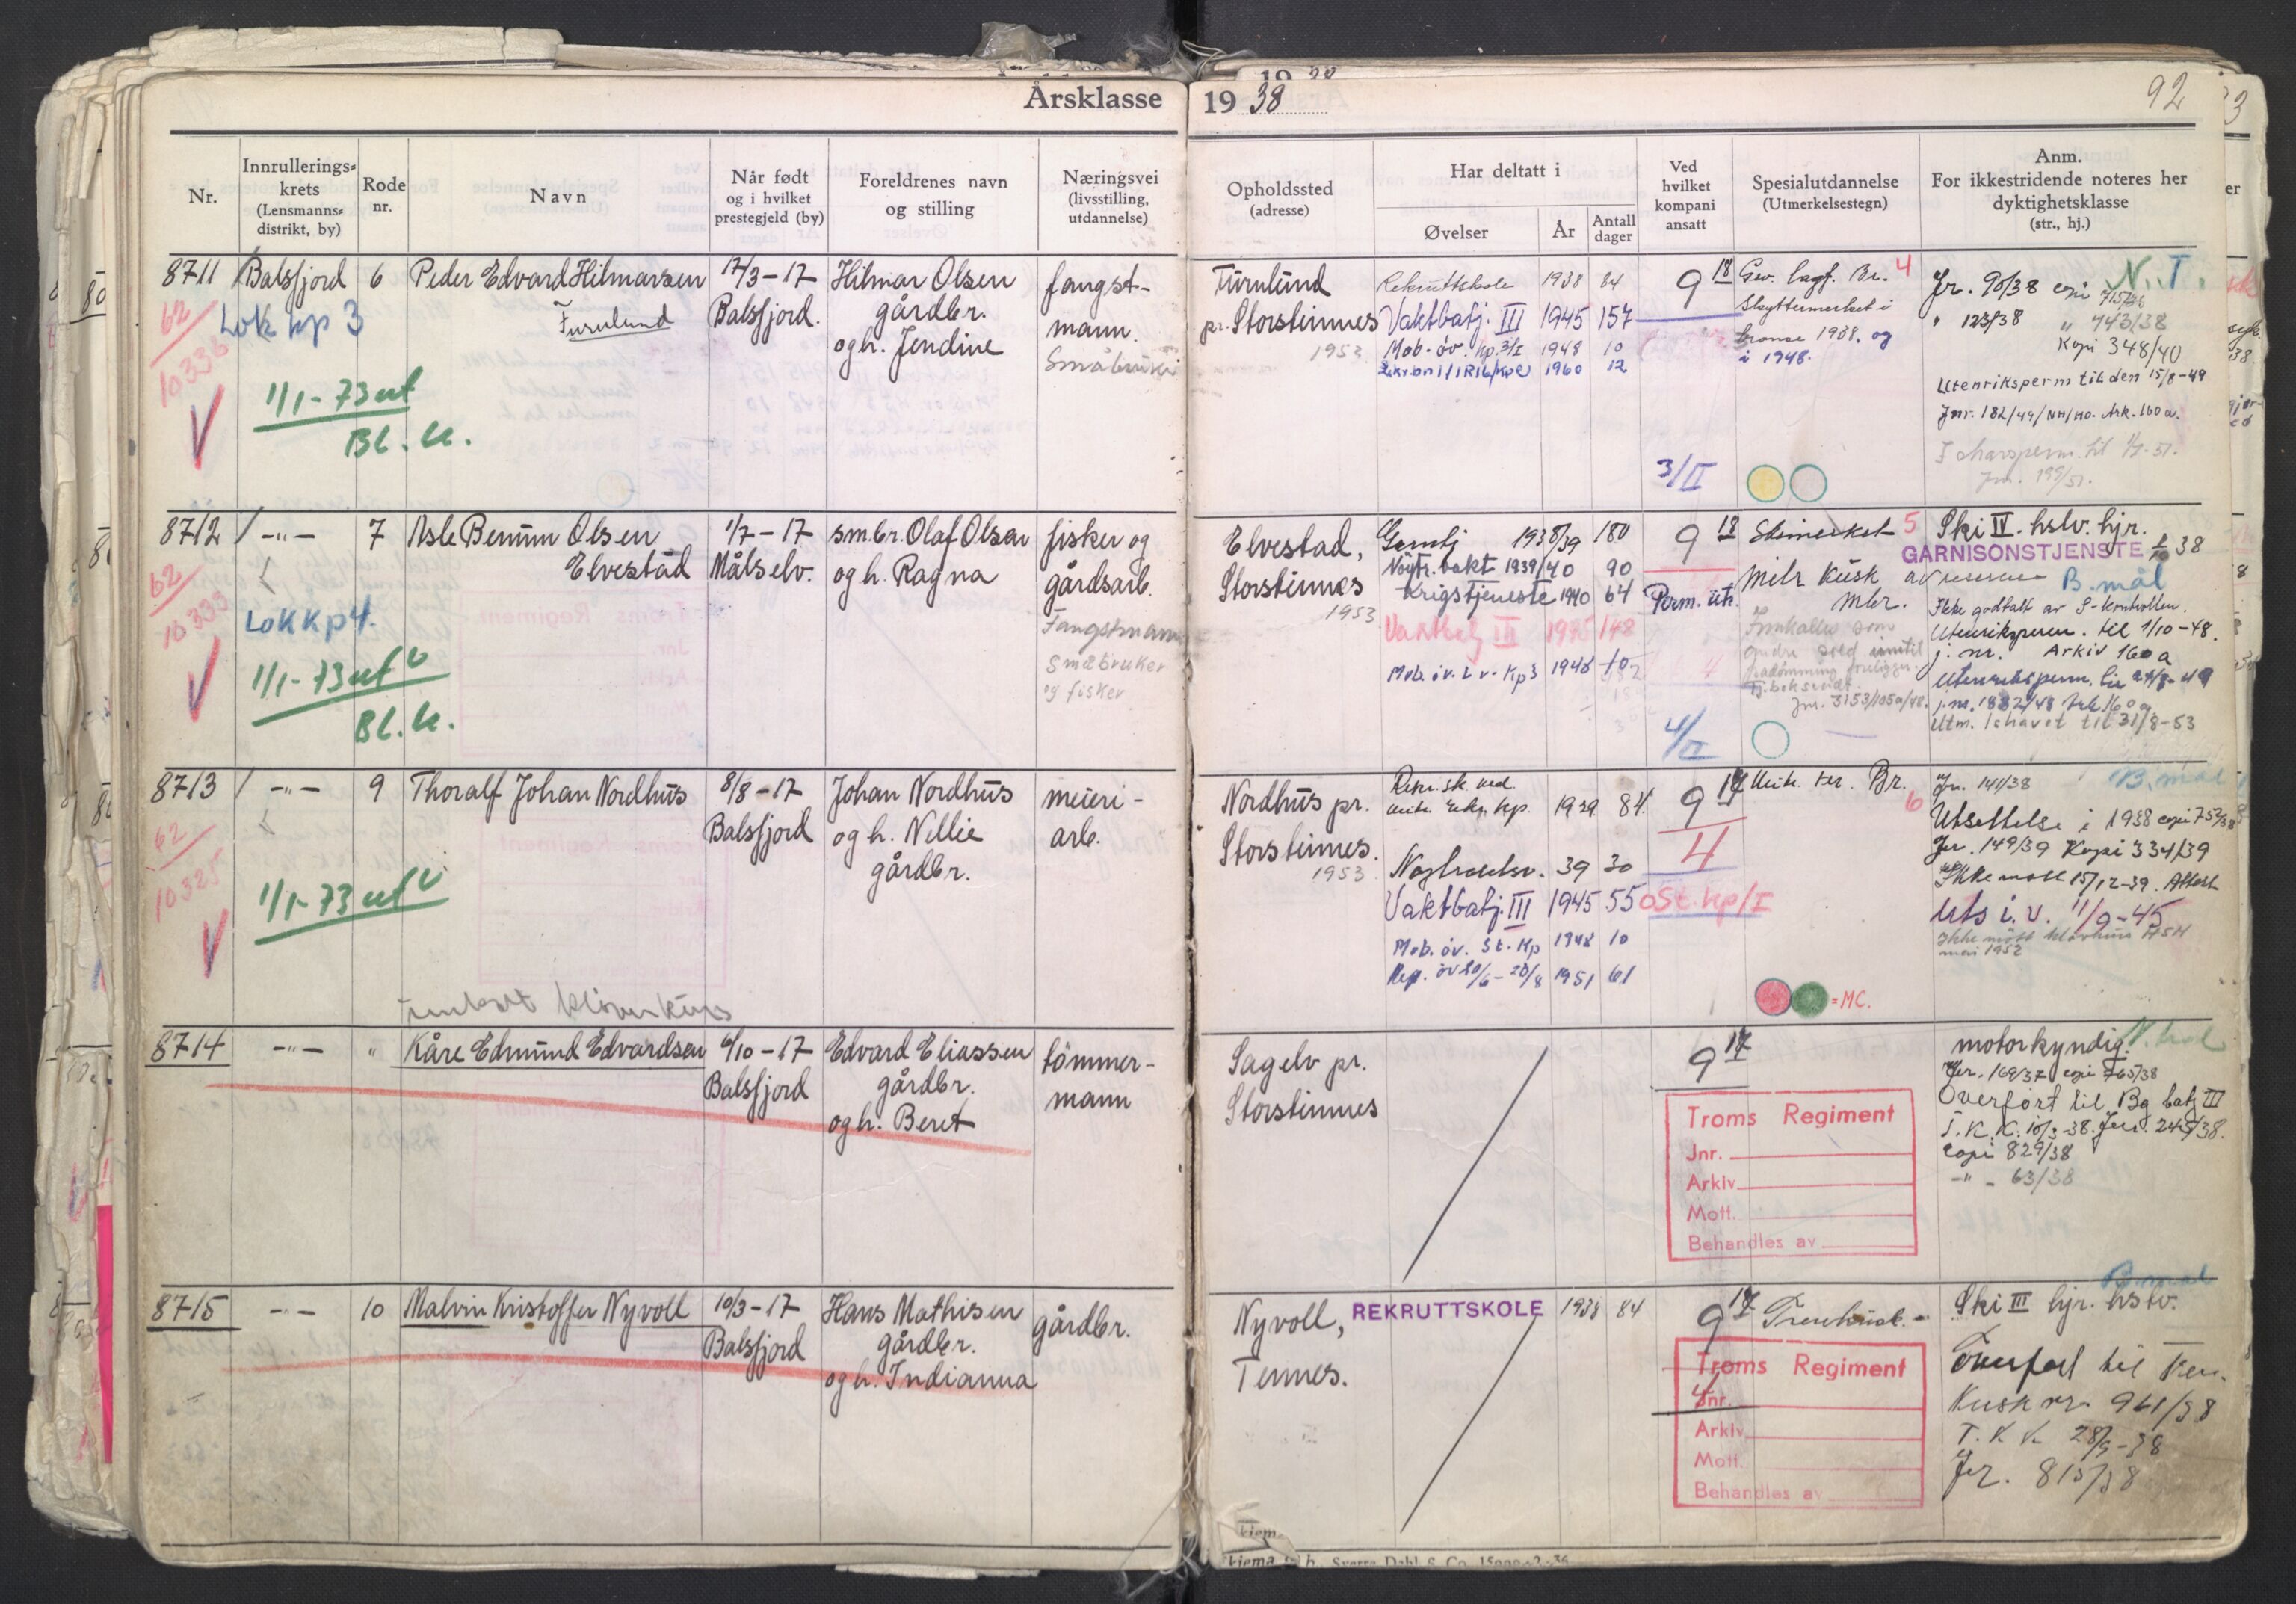 Årsklasse 19 38
92
Nr.
Innrullerings-
krets
(Lensmanns-
distrikt, by)
Rode
nr.
Navn
Når født
og i hvilket
prestegjeld (by)
Foreldrenes navn
og stilling
Næringsvei
(livsstilling,
utdannelse)
Opholdssted
(adresse)
Har deltatt i
Øvelser
År
Antall
dager
Ved
hvilket
kompani
ansatt
Spesialutdannelse
(Utmerkelsestegn)
Anm.
For ikkestridende noteres her
dyktighetsklasse
(str., hj.)
8711
62
10336
Balsfjord
Lok kp 3
1/1-73 ut
Bl. k.
6
Peder Edvard Hilmarsen
Furulund
17/3-17
Balsfjord.
Hilmar Olsen
gårdbr.
og h. Jendine
fangst-
mann.
Småbruker
Furulund
pr. Storsteinnes
1953
Rekruttskole 1938 84
Vaktbatj. III 1945 157
Mob. øv. kp. 3/I 1948 10
1960 12
9 18
3/II
Gev. lagf. Br. 4
Skyttermerket i
bronse 1938. og
i 1948.
N.T.
Jr. 90/38 copi 715/38
" 123/38 " 743/38
Kopi 348/40
Utenriksperm til den 15/8-49
Jnr. 182/49/NH/HO. Ark. 160 a.
Ishavsperm. til 1/1-51.
Jnr. 199/51.
8712
62
10333
-"-
Lok Kp 4.
1/1-73 ut
Bl. k.
7
Asle Benum Olsen
Elvestad
1/7-17
Målselv.
smbr. Olaf Olsen
og h. Ragna
fisker og
gårdsarb.
Fangstmann
Småbruker
og fisker
Elvestad,
Storsteinnes
1953
1938/39 180
Nøytr. vakt 1939/40 90
Krigstjeneste 1940 64
Vaktbatj III 1945 148
Mob. øv. Lv. Kp 3 1948 10
9 18
Perm. utr.
4
4/II
Skimerket 5
Mitr kusk
Mtr.
Innkalles som
Jnr. 3153/105a/48.
Ski IV. hstv. hjr.
GARNISONSTJENSTE 38
B. mål
Ikke godtatt av S-kontrollen.
Utenriksperm. til 1/10-48.
j. nr. Arkiv 160 a
Utenriksperm. til
j. nr. 1882/48 Ark 160 a
Utm. Ishavet til 31/8-53
8713
62
10325
-"-
1/1-73 ut
9
Thoralf Johan Nordhus
8/8-17
Balsfjord
Johan Nordhus
og h. Nellie
gårdbr.
meieri-
arb.
Nordhus pr.
Storsteinnes.
1953
Rekr. sk. ved
mitr. rekr. kp. 1939 84
39 30
Vaktbatj. III 1945 55
Mob. øv. St. Kp 1948 10
Rep. øv 20/6-20/8 1951 61
9 17
4
St. kp/I
Mitr. ter. Br.
6
=MC.
B. mål
Jr. 141/38
Utsettelse i 1938 copi 752/38
Jr. 149/39 Kopi 334/39
Ikke møtt 15/12-39. Attest
Uts i. v. 11/9-45
Ikke møtt kløvkurs HSH
mai 1952
kløverkurs
8714
-"-
"
Kåre Edmund Edvardsen
6/10-17
Balsfjord
Edvard Eliassen
gårdbr.
og h. Beret
tömmer-
mann
Sagelv pr.
Storsteinnes
9 17
Troms Regiment
Jnr.
Arkiv
Mott.
Behandles av
motorkyndig.
Jr. 169/37 copi 765/38
Overført til Bg batj III
T. K. K. 10/3-38. Jnr. 245/38.
copi 829/38
-"- 63/38
8715
-"-
10
Malvin Kristoffer Nyvoll
10/3-17
Balsfjord
Hans Mathisen
gårdbr.
og h. Indianna
gårdbr.
Nyvoll,
Tennes.
REKRUTTSKOLE 1938 84
9 17
4
Trenkusk.
Troms Regiment
Jnr.
Arkiv
Mott.
Behandles av
B. mål
Ski III hjr. hstv.
Overført til Tren.
Kusk nr. 961/38
T. K. K. 28/9-38
Jr. 815/38